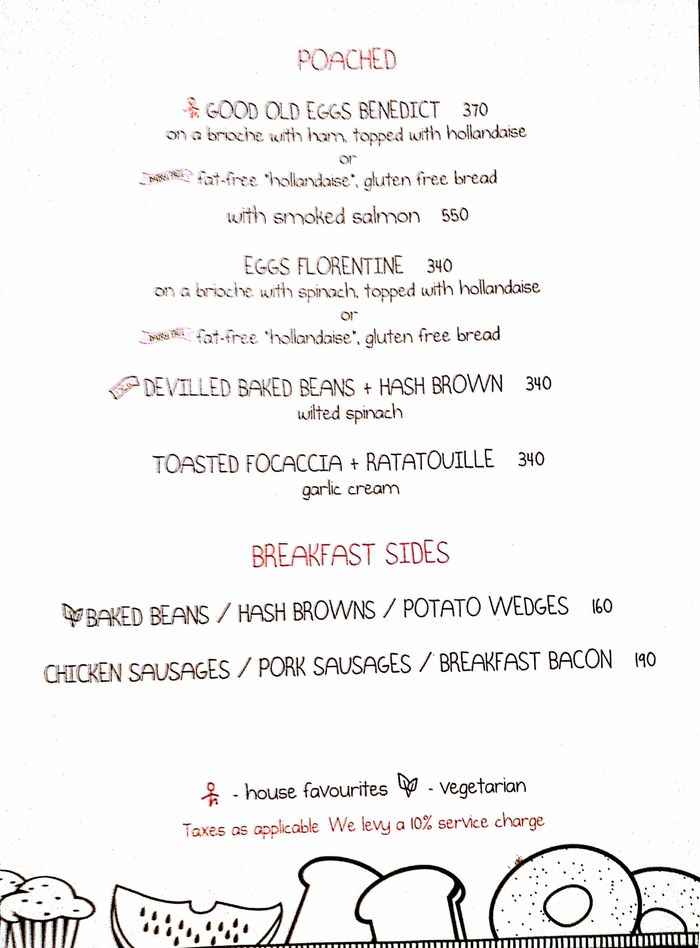 POACHED
GOOD OLD EGGS BENEDICT 370
on a brioche with ham, topped with hollandaise
or
fat-free "hollandaise", gluten free bread
with smoked salmon 550
EGGS FLORENTINE 340
on a brioche with spinach, topped with hollandaise
or
fat-free "hollandaise", gluten free bread
DEVILLED BAKED BEANS + HASH BROWN 340
wilted spinach
TOASTED FOCACCIA + RATATOUILLE 340
garlic cream
BREAKFAST SIDES
BAKED BEANS / HASH BROWNS / POTATO WEDGES 160
CHICKEN SAUSAGES / PORK SAUSAGES / BREAKFAST BACON 190
- house favourites - vegetarian
Taxes as applicable We levy a 10% service charge